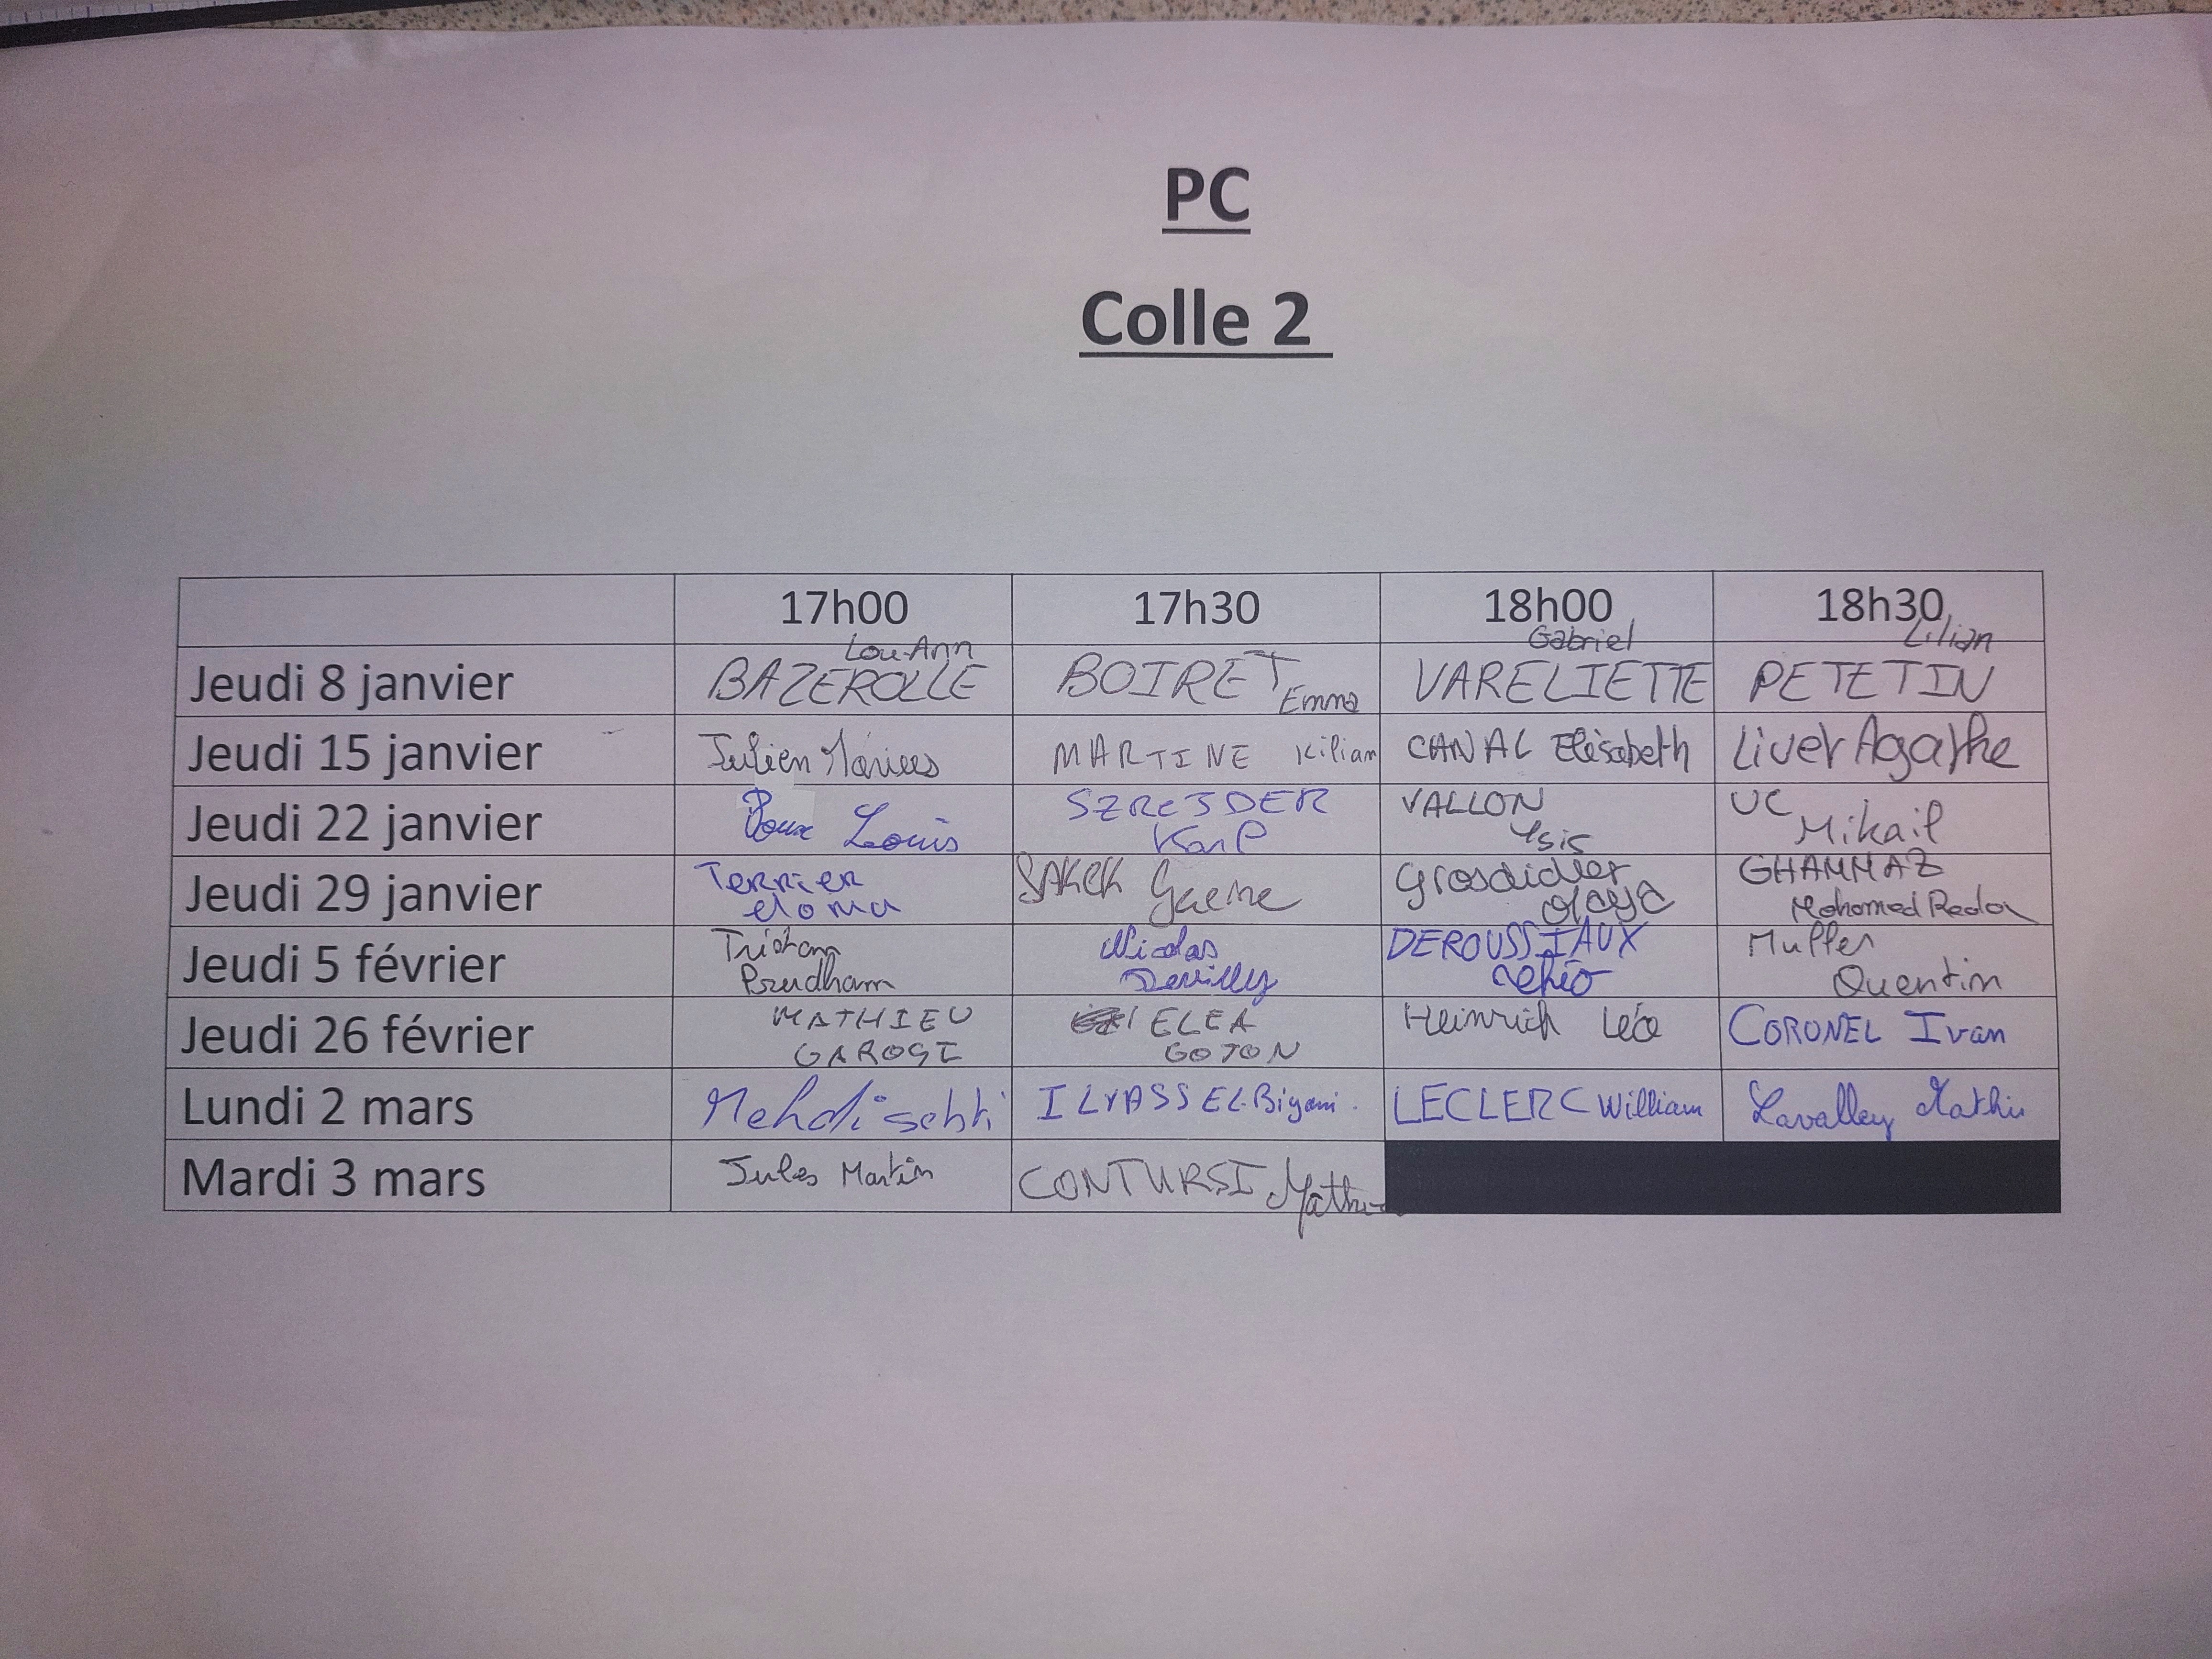 PC
Colle 2
17h00 17h30 18h00 18h30
Jeudi 8 janvier BAZEROLLE Lou-Ann BOIRET Emma VARELIETTE Gabriel PETETIN Lilian
Jeudi 15 janvier Julien MARTINE Kilian CANAL Elisabeth Liver Agathe
Jeudi 22 janvier Roux Louis SZREJDER Karl VALLON Ysis UC Mikail
Jeudi 29 janvier Terrier Grosdidier GHAMMAZ Mohamed Reda
Jeudi 5 février Tristan Prudham Nicolas Devilly DEROUSSIAUX Muller Quentin
Jeudi 26 février MATHIEU ELEA GOTON Heinrich Léo CORONEL Ivan
Lundi 2 mars Mehdi sebti ILYASS EL-Biyani LECLERC William Lavalley Mathis
Mardi 3 mars Jules Martin CONTURSI